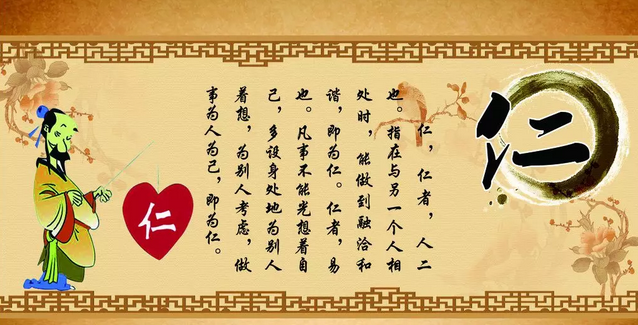 仁
仁，仁者，人二
也。指在与另一个人相
处时，能做到融洽和
谐，即为仁。仁者，易
也。凡事不能光想着自
己，多设身处地为别人
着想，为别人考虑，做
事为人为己，即为仁。
仁